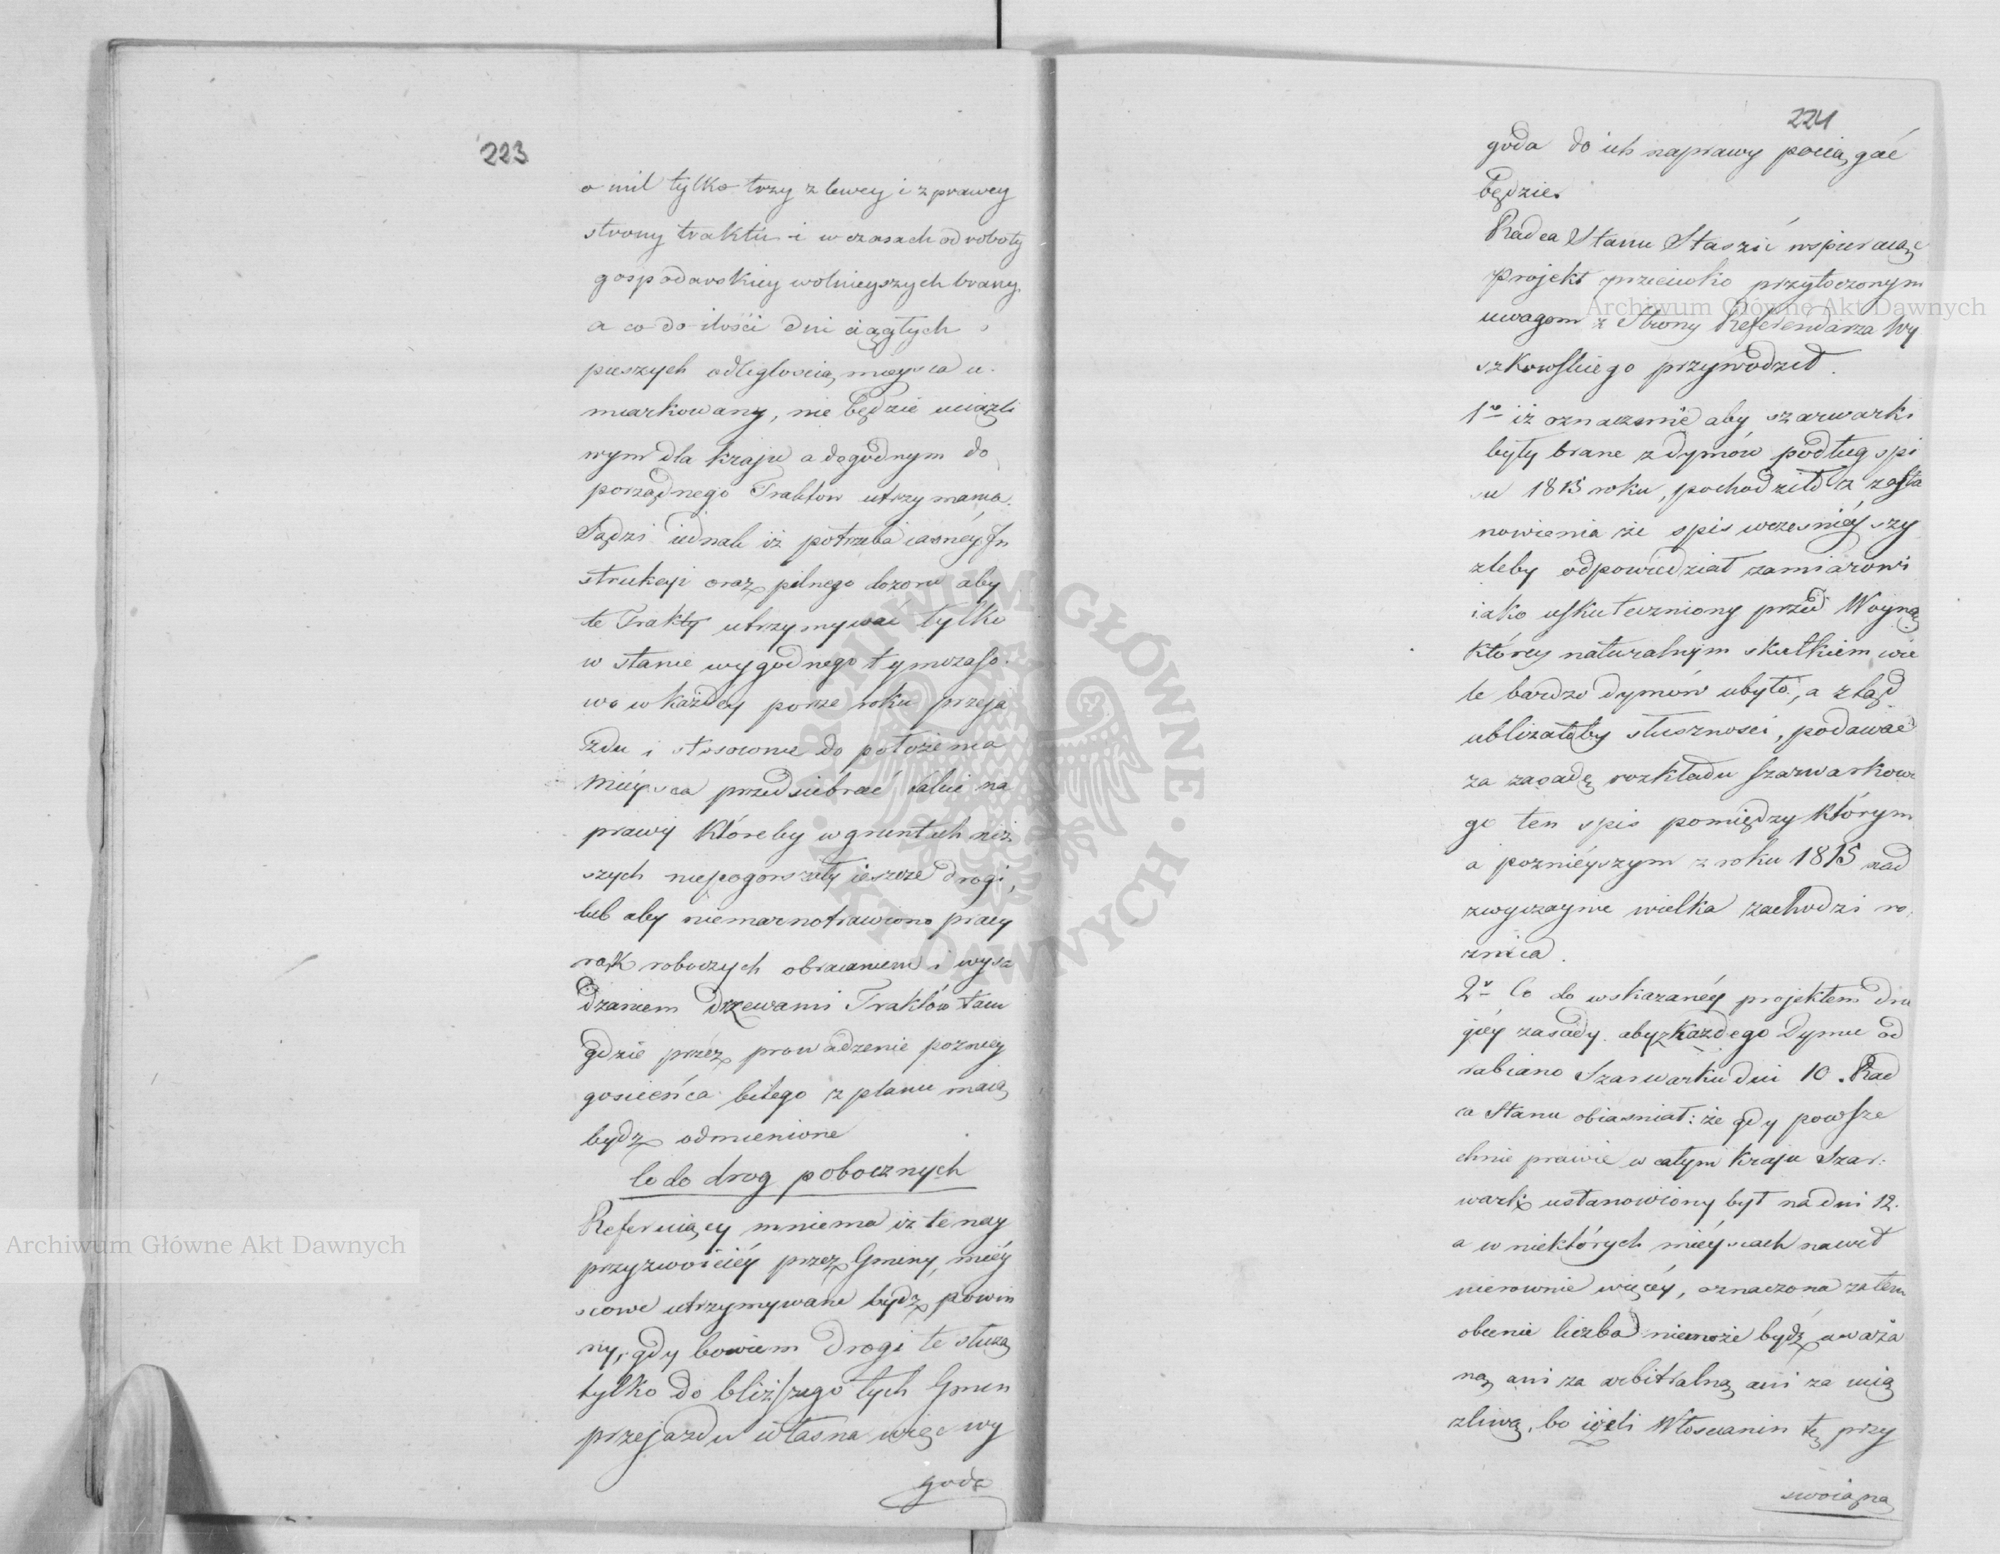 223
o mil tylko trzy z lewey i z prawey
strony traktu i w czasach od roboty
gospodarskiey wolnieyszych brany,
a co do ilości dni ciągłych i
pieszych odległością mieysca u-
miarkowany, nie będzie uciążli
wym dla kraju a dogodnym do
porządnego Traktow utrzymania.
Sądzi iednak iż potrzeba iasnéy In
strukcji oraz pilnego dozoru aby
te Trakty utrzymywać tylko
w stanie wygodnego tymczaso-
wo w każdey porze roku przeja
zdu i stosownie do położenia
Mieysca przedsiebrać takie na
prawy któreby w gruntach niż-
szych niepogorszały ieszcze drogi,
lub aby niemarnotrawiono pracy
rąk roboczych obracaniem i wysa
dzaniem drzewami Traktów tam
gdzie przez prowadzenie pozniey
gosieńca bitego z planu maią
bydz odmienione
Co do drog pobocznych
Referuiący mniema iż te nay
przyzwoiciéy przez Gminy, miéy
scowe utrzymywane bydz powin
ny, gdy bowiem Drogi te służą
tylko do bliższego tych Gmin
przejazdu własna więc wy
goda
224
goda do ich naprawy pociągać
będzie.
Radca Stanu Staszic wspieraiąc
Projekt przeciwko przytoczonym
uwagom z Strony Referendarza Wy
szkowskiego przywodził.
1o iż oznaczenie aby szarwarki
były brane z dymów podług spi
su 1815 roku, pochodziło z zasta
nowienia że spis wczesniéyszy
zleby odpowiedział zamiarowi
iako uskuteczniony przed Woyną
którey naturalnym skutkiem wie
le bardzo dymów ubyło, a ztąd
ubliżałoby słuszności, podawać
za zasadę rozkładu szarwarkowe
go ten spis pomiędzy którym
a poznieyszym z roku 1815 nad
zwyczaynie wielka zachodzi ro-
żnica.
2o Co do wskazanéy projektem dru
giéy zasady aby z każdego Dymu od
rabiano Szarwarku dni 10. Rad
ca Stanu obiasniał: że gdy powsze
chnie prawie w całym Kraju Szar-
wark ustanowiony był na dni 12.
a w niektórych miéyscach nawet
nierownie więcéy, oznaczona zatem
obecnie liczba niemoże bydź uważa
ną ani za arbitralną ani za ucią
żliwą, bo ieżeli Włoscianin tę przy
swoią na
Archiwum Główne Akt Dawnych
Archiwum Główne Akt Dawnych
ARCHIWUM GŁÓWNE AKT DAWNYCH